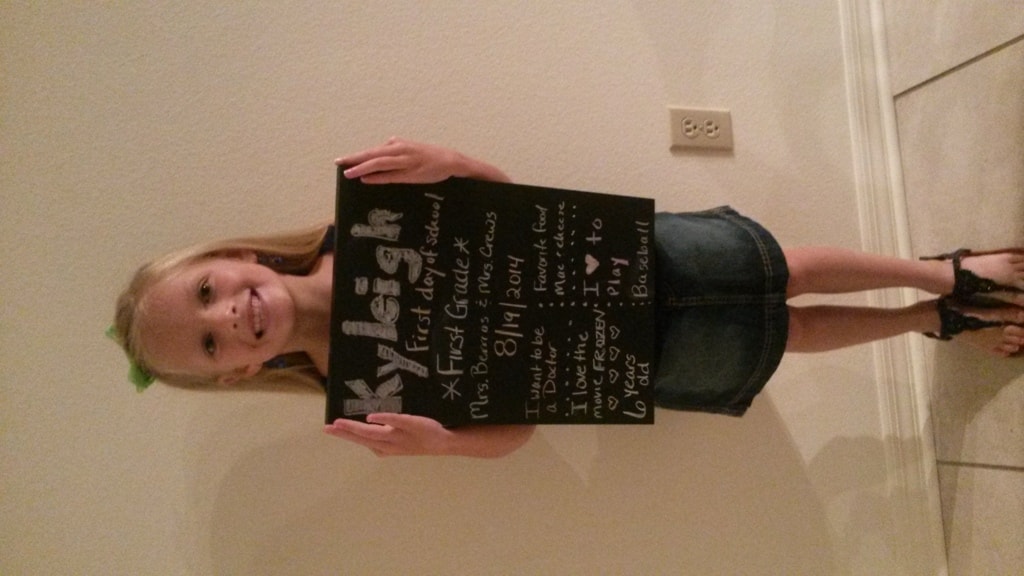 Kyleigh
First day of school
*First Grade*
Mrs. Berros & Mrs. Crews
8/19/2014
I want to be
a Docter
I love the
movie FROZEN
6 years
old
Favorite food
Mac & cheese
I ♥ to
Play
Baseball